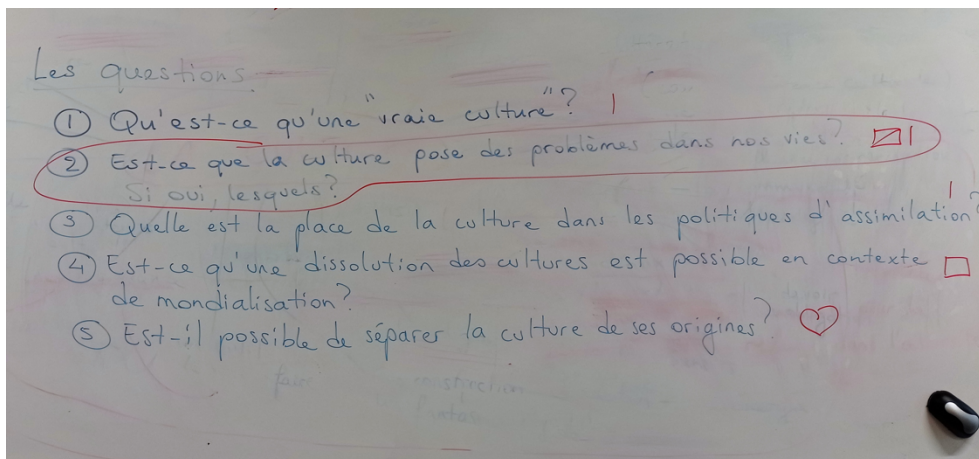 Les questions
① Qu'est-ce qu'une "vraie culture"?
② Est-ce que la culture pose des problèmes dans nos vies?
Si oui, lesquels?
③ Quelle est la place de la culture dans les politiques d'assimilation?
④ Est-ce qu'une dissolution des cultures est possible en contexte
de mondialisation?
⑤ Est-il possible de séparer la culture de ses origines?